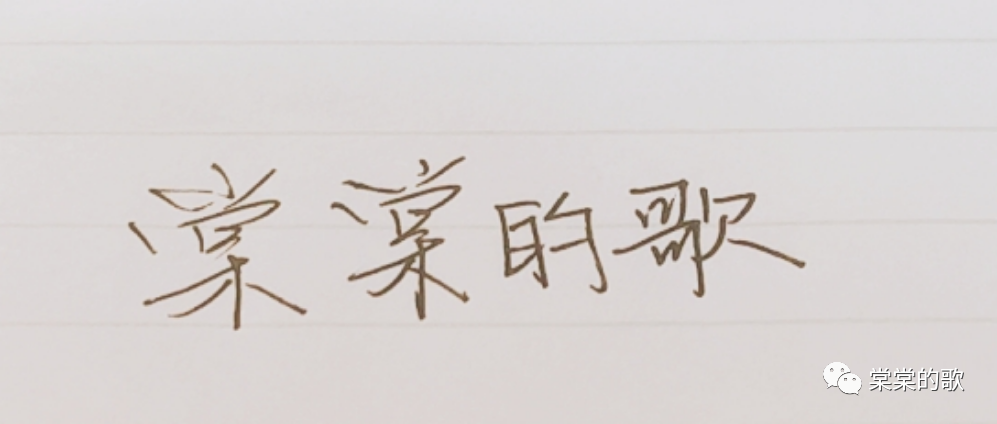 棠棠的歌
棠棠的歌